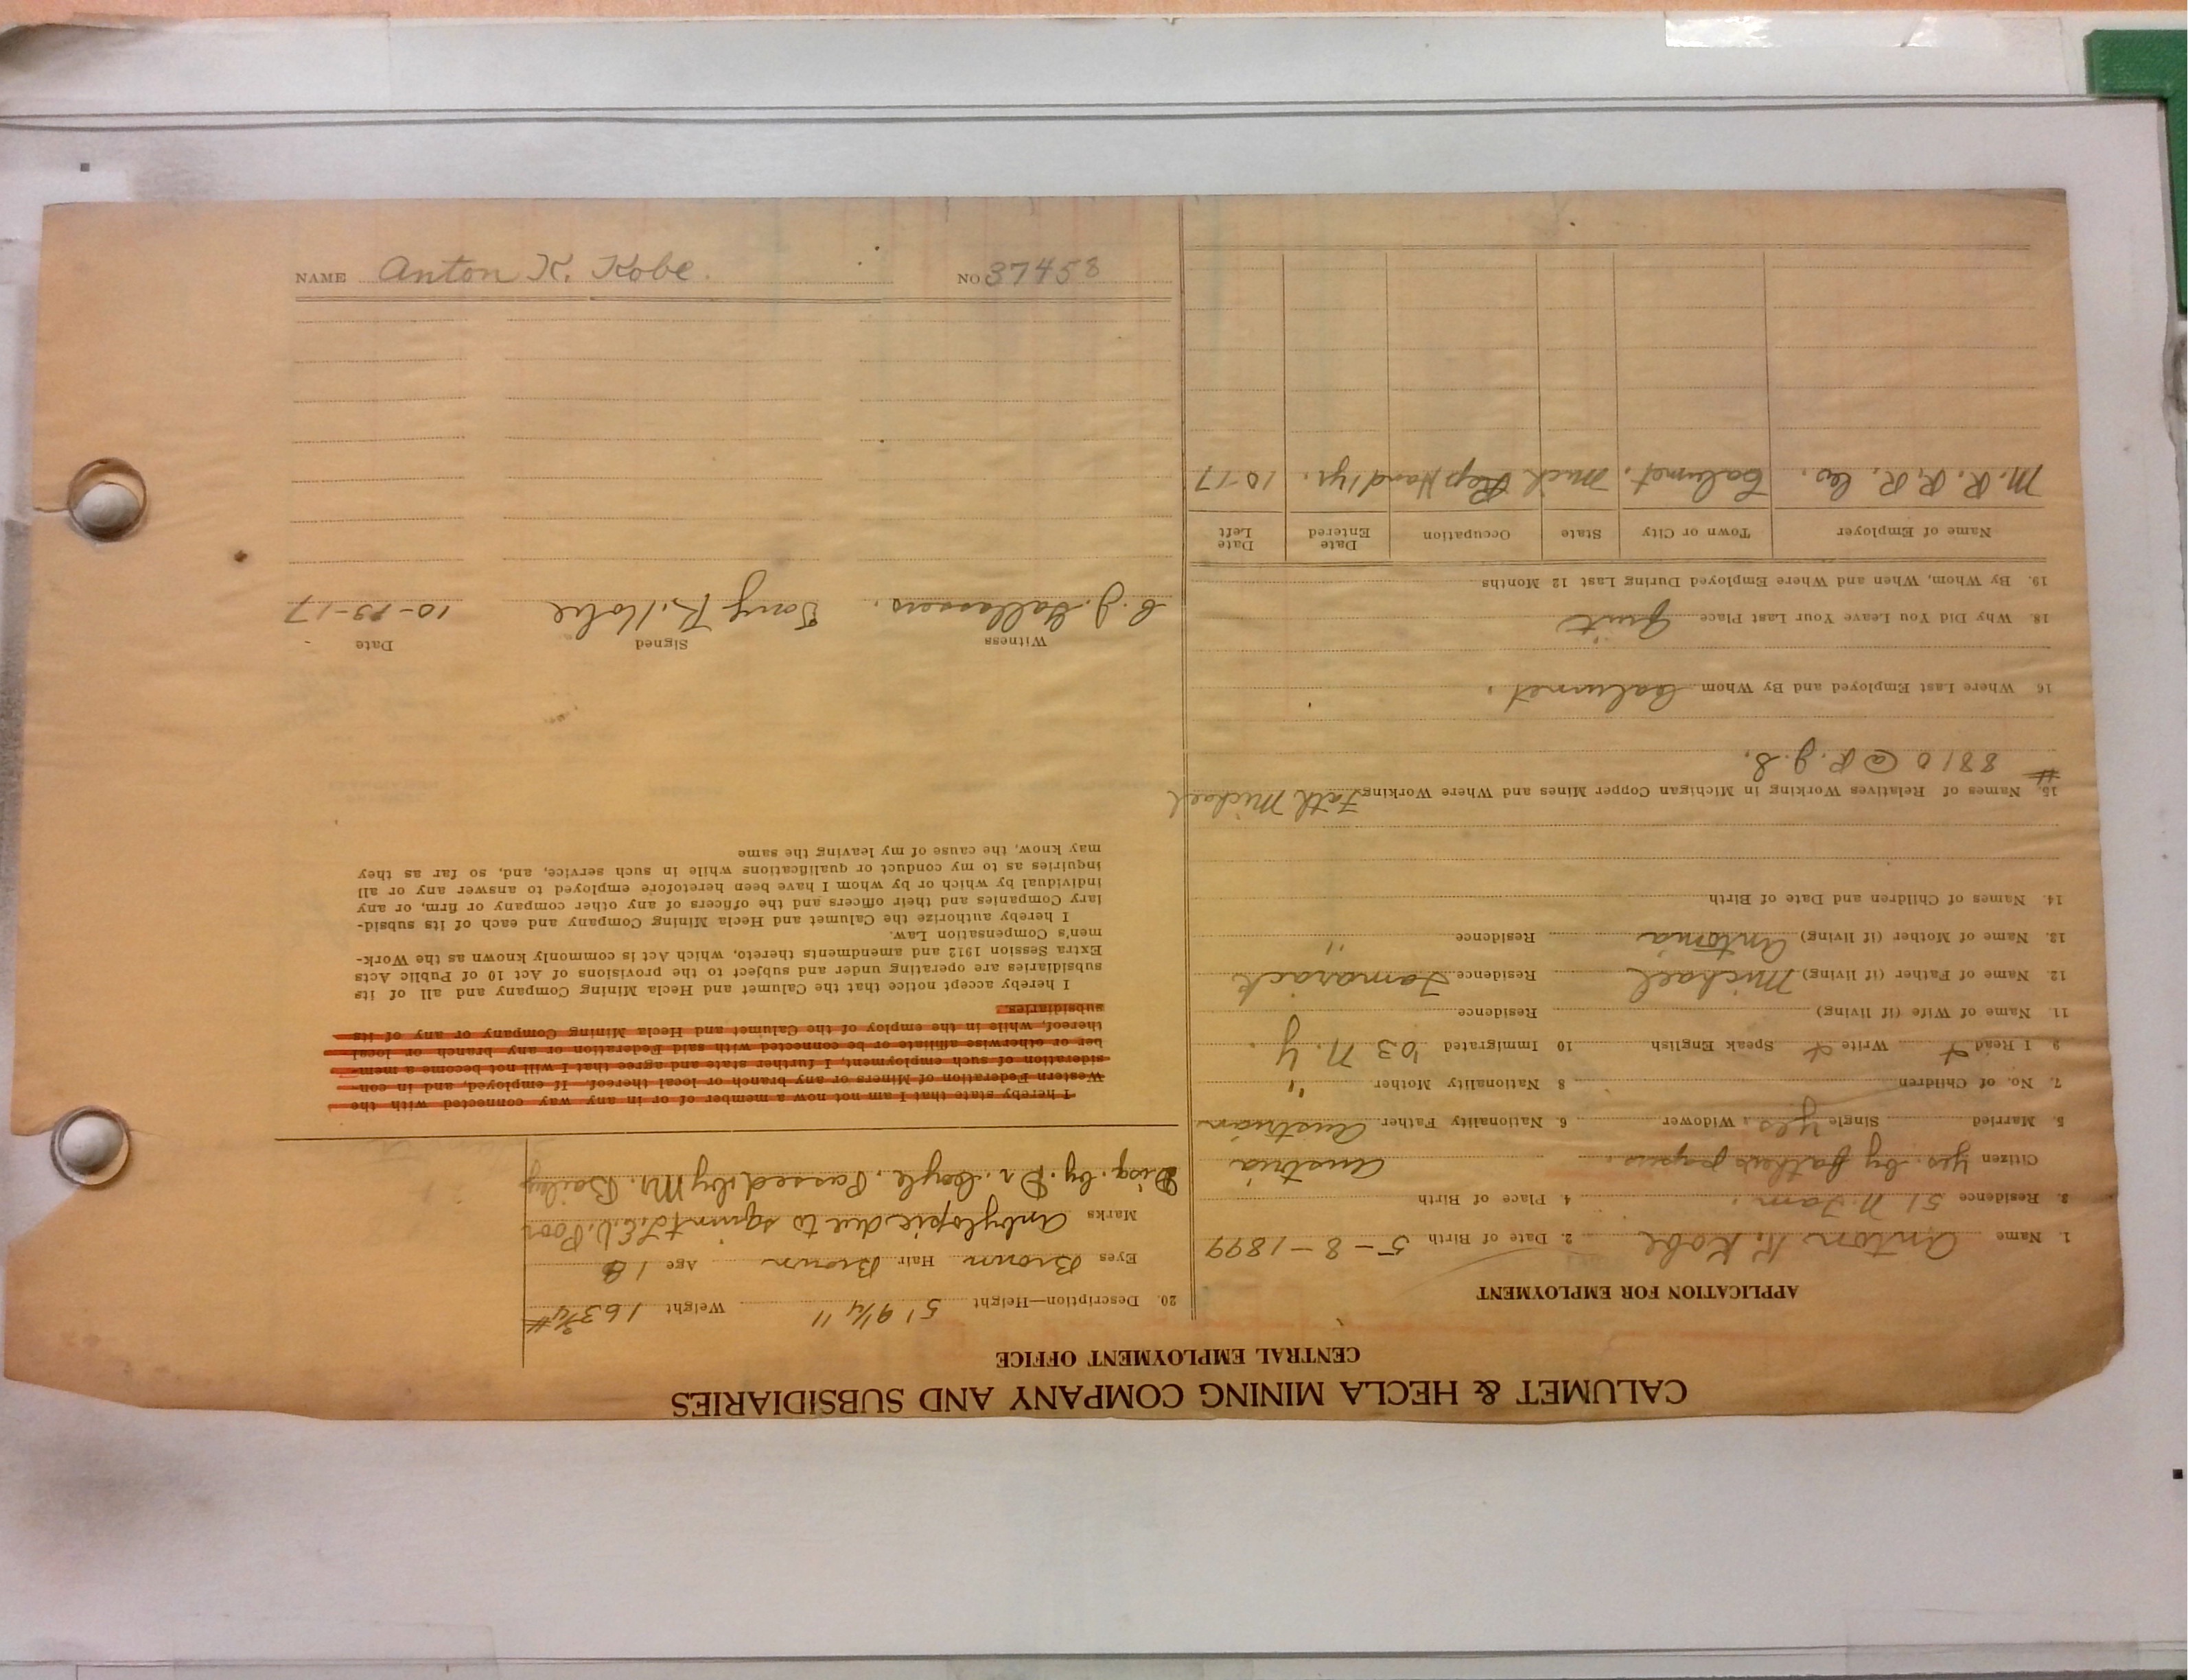 CALUMET & HECLA MINING COMPANY AND SUBSIDIARIES
CENTRAL EMPLOYMENT OFFICE
APPLICATION FOR EMPLOYMENT
1. Name Anton K. Kobe 2. Date of Birth 5-8-1899
3. Residence 51 N. Tam. 4. Place of Birth
Citizen Yes. by fathers papers. Austria
5. Married Single Yes. Widower 6. Nationality Father Austrian
7. No. of Children 8 Nationality Mother "
9 I Read Write Speak English 10 Immigrated '03 N.Y.
11. Name of Wife (if living) Residence
12. Name of Father (if living) Michael Residence Tamarack
13. Name of Mother (if living) Antonia Residence "
14. Names of Children and Date of Birth
15. Names of Relatives Working in Michigan Copper Mines and Where Working Fath Michael
# 8810 @ R.J.S.
16 Where Last Employed and By Whom Calumet.
18. Why Did You Leave Your Last Place Quit
19. By Whom, When and Where Employed During Last 12 Months
Name of Employer Town or City State Occupation Date Entered Date Left
M. R. R. R. Co. Calumet. Mich Rep Hand 1 yr. 10-17
20. Description—Height 5' 9 1/4" Weight 163 3/4 #
Eyes Brown Hair Brown Age 18
Marks Ambylopic due to squint L.E.V. Poor
Disq. by. Dr. Coyle. Passed by Mr. Bailey
I hereby state that I am not now a member of or in any way connected with the
Western Federation of Miners or any branch or local thereof. If employed, and in con-
sideration of such employment, I further state and agree that I will not become a mem-
ber or otherwise affiliate or be connected with said Federation or any branch or local
thereof, while in the employ of the Calumet and Hecla Mining Company or any of its
subsidiaries.
I hereby accept notice that the Calumet and Hecla Mining Company and all of its
subsidiaries are operating under and subject to the provisions of Act 10 of Public Acts
Extra Session 1912 and amendments thereto, which Act is commonly known as the Work-
men's Compensation Law.
I hereby authorize the Calumet and Hecla Mining Company and each of its subsid-
iary Companies and their officers and the officers of any other company or firm, or any
individual by which or by whom I have been heretofore employed to answer any or all
inquiries as to my conduct or qualifications while in such service, and, so far as they
may know, the cause of my leaving the same
Witness Signed Date
C. J. Tony K. Kobe 10-23-17
NAME Anton K. Kobe. NO 37458